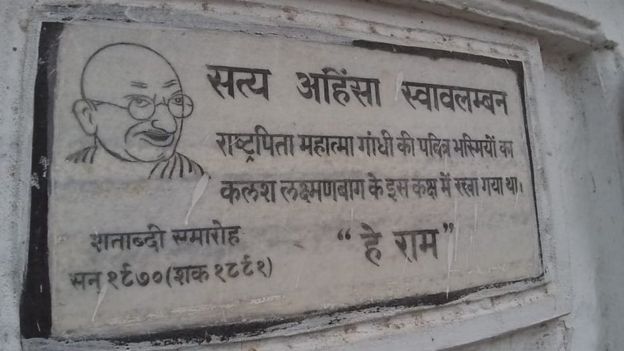 सत्य अहिंसा स्वावलम्बन
राष्ट्रपिता महात्मा गांधी की पवित्र भस्मियों का
कलश लक्ष्मणबाग के इस कक्ष में रखा गया था।
शताब्दी समारोह
सन् १९७०(शक १८९१)
“हे राम”